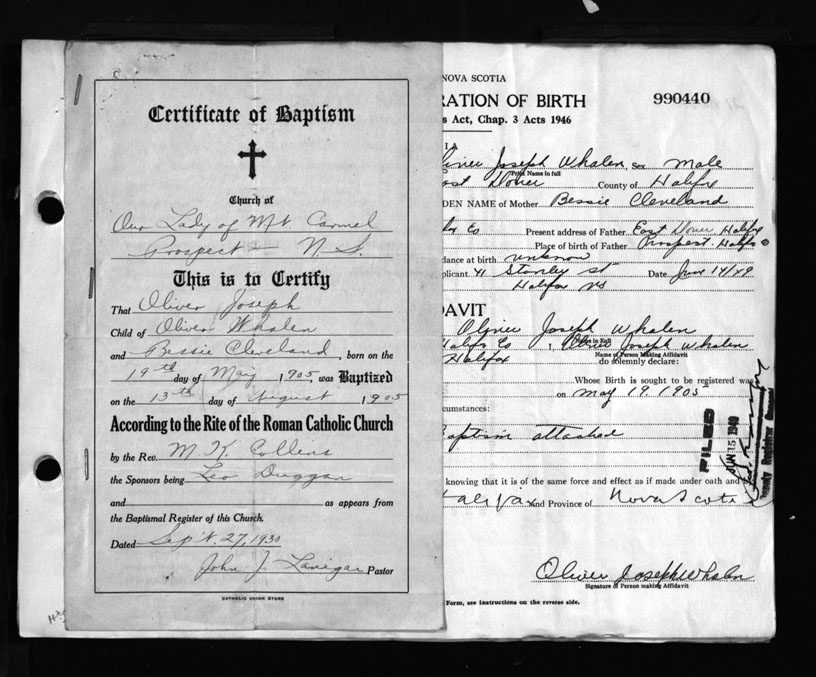 Certificate of Baptism
Church of
Our Lady of Mt. Carmel
Prospect - N.S.
This is to Certify
That Oliver Joseph
Child of Oliver Whalen
and Bessie Cleveland, born on the
19th day of May 1905, was Baptized
on the 13th day of August 1905
According to the Rite of the Roman Catholic Church
by the Rev. M. K. Collins
the Sponsors being Leo Duggan
and as appears from
the Baptismal Register of this Church.
Dated Sep't. 27, 1930
John J. Lanigan Pastor
CATHOLIC UNION STORE
NOVA SCOTIA
RATION OF BIRTH 990440
s Act, Chap. 3 Acts 1946
IA
liver Joseph Whalen, Sex Male
Print Name in full
ast Dover County of Halifax
DEN NAME of Mother Bessie Cleveland
Present address of Father East Dover Halifax
Place of birth of Father Prospect. Halifax
dance at birth unknown
plicant 41 Stanley st Date June 14/49
Halifax NS
DAVIT
Oliver Joseph Whalen
Name in Full
Halifax Co I, Oliver Joseph Whalen
Name of Person Making Affidavit
Halifax do solemnly declare:
Whose Birth is sought to be registered was
on may 19. 1905
cumstances:
Baptism attached
FILED
JUN 15 1949
Deputy Registrar General
knowing that it is of the same force and effect as if made under oath and b
Halifax and Province of Nova Scotia
Oliver Joseph Whalen
Signature of Person making Affidavit
Form, see instructions on the reverse side.